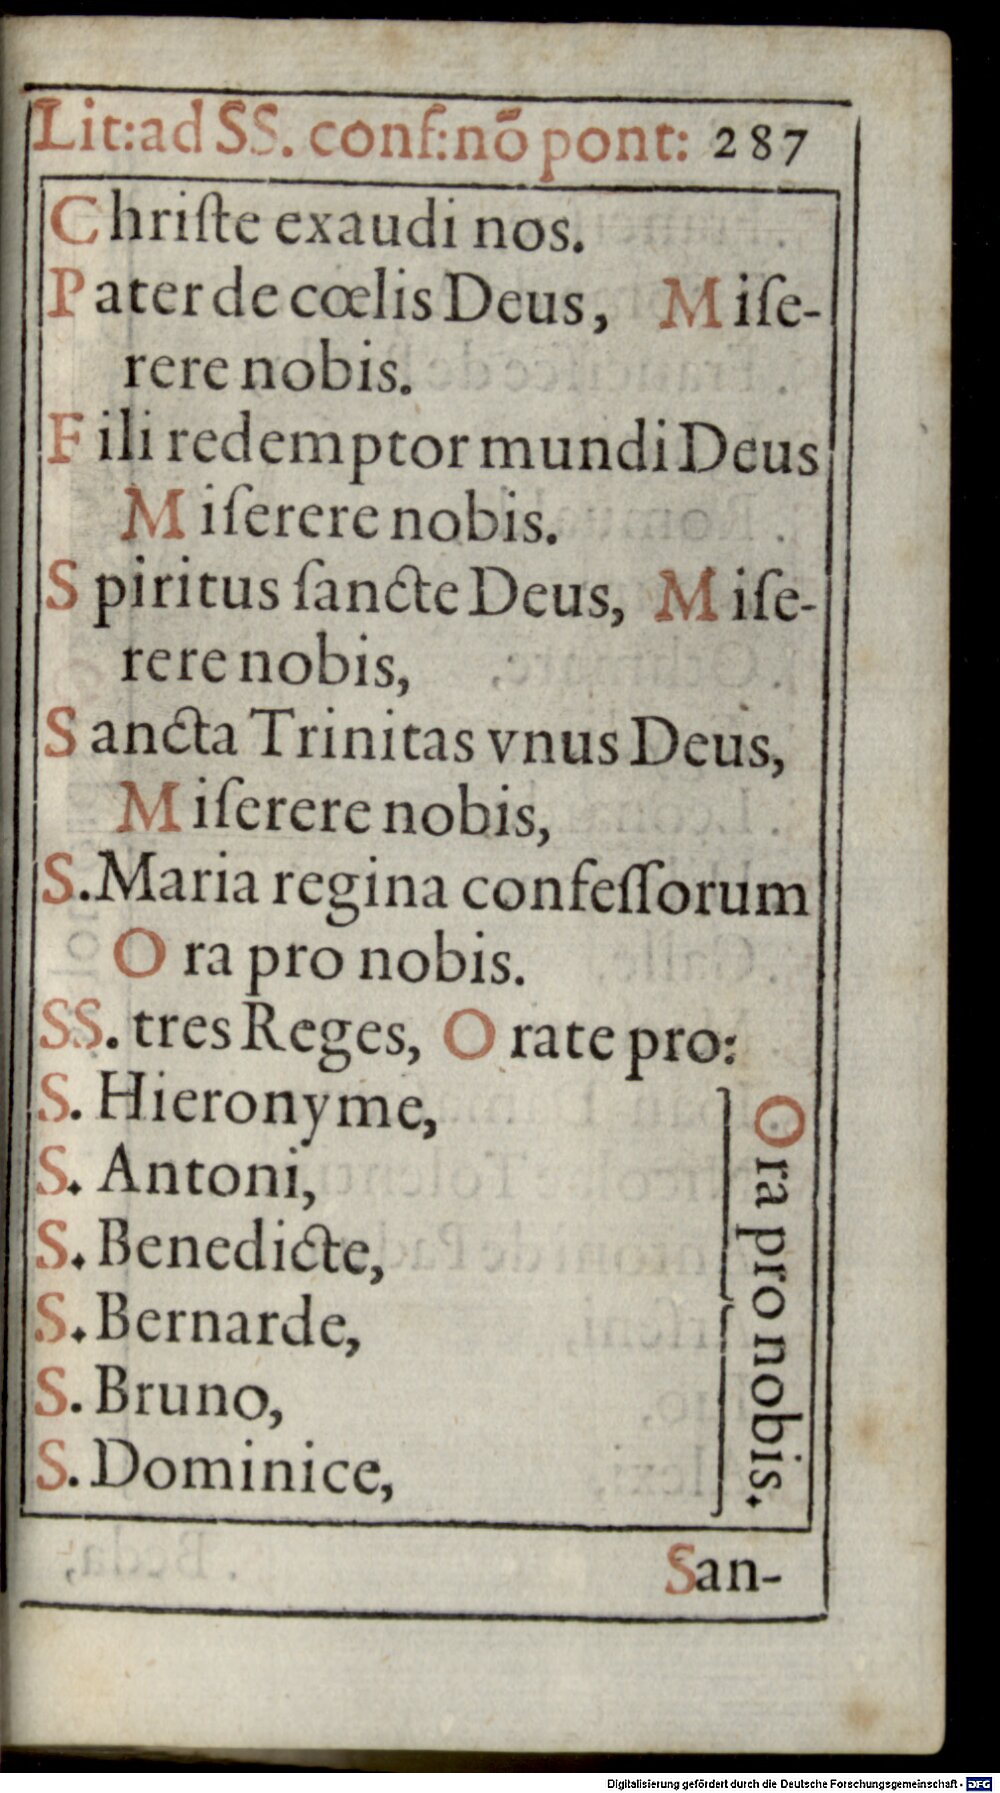 Lit:ad SS. conf:nõ pont: 287
Chriſte exaudi nos.
Pater de cœlis Deus, Miſe-
rere nobis.
Fili redemptor mundi Deus
Miſerere nobis.
Spiritus ſancte Deus, Miſe-
rere nobis,
Sancta Trinitas vnus Deus,
Miſerere nobis,
S. Maria regina confeſſorum
Ora pro nobis.
SS. tres Reges, Orate pro:
S. Hieronyme,
S. Antoni,
S. Benedicte,
S. Bernarde,
S. Bruno,
S. Dominice,
Ora pro nobis.
San-
Digitalisierung gefördert durch die Deutsche Forschungsgemeinschaft - DFG